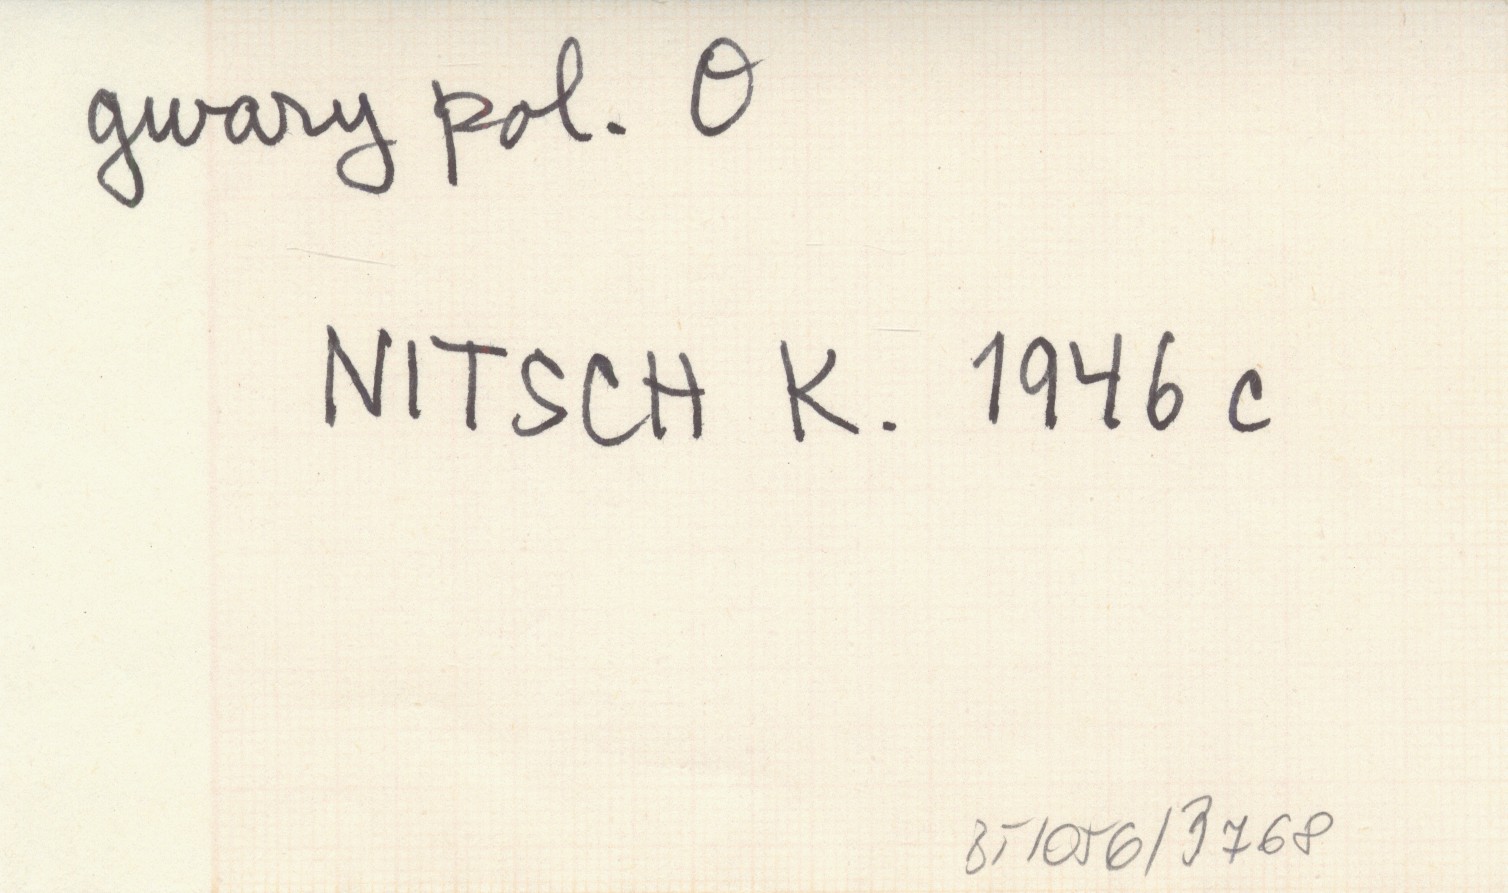 gwary pol. O
NITSCH K. 1946 c
BT1056/3768